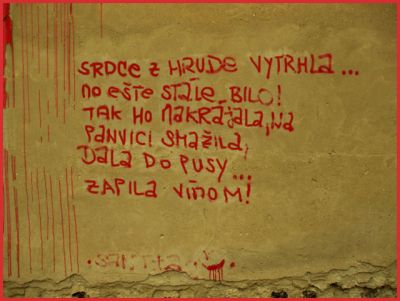 SRDCE Z HRUDE VYTRHLA...
NO EŠTE STÁLE BILO!
TAK HO NAKRÁJALA, NA
PANVICI SMAŽILA,
DALA DO PUSY...
ZAPILA VÍNOM!